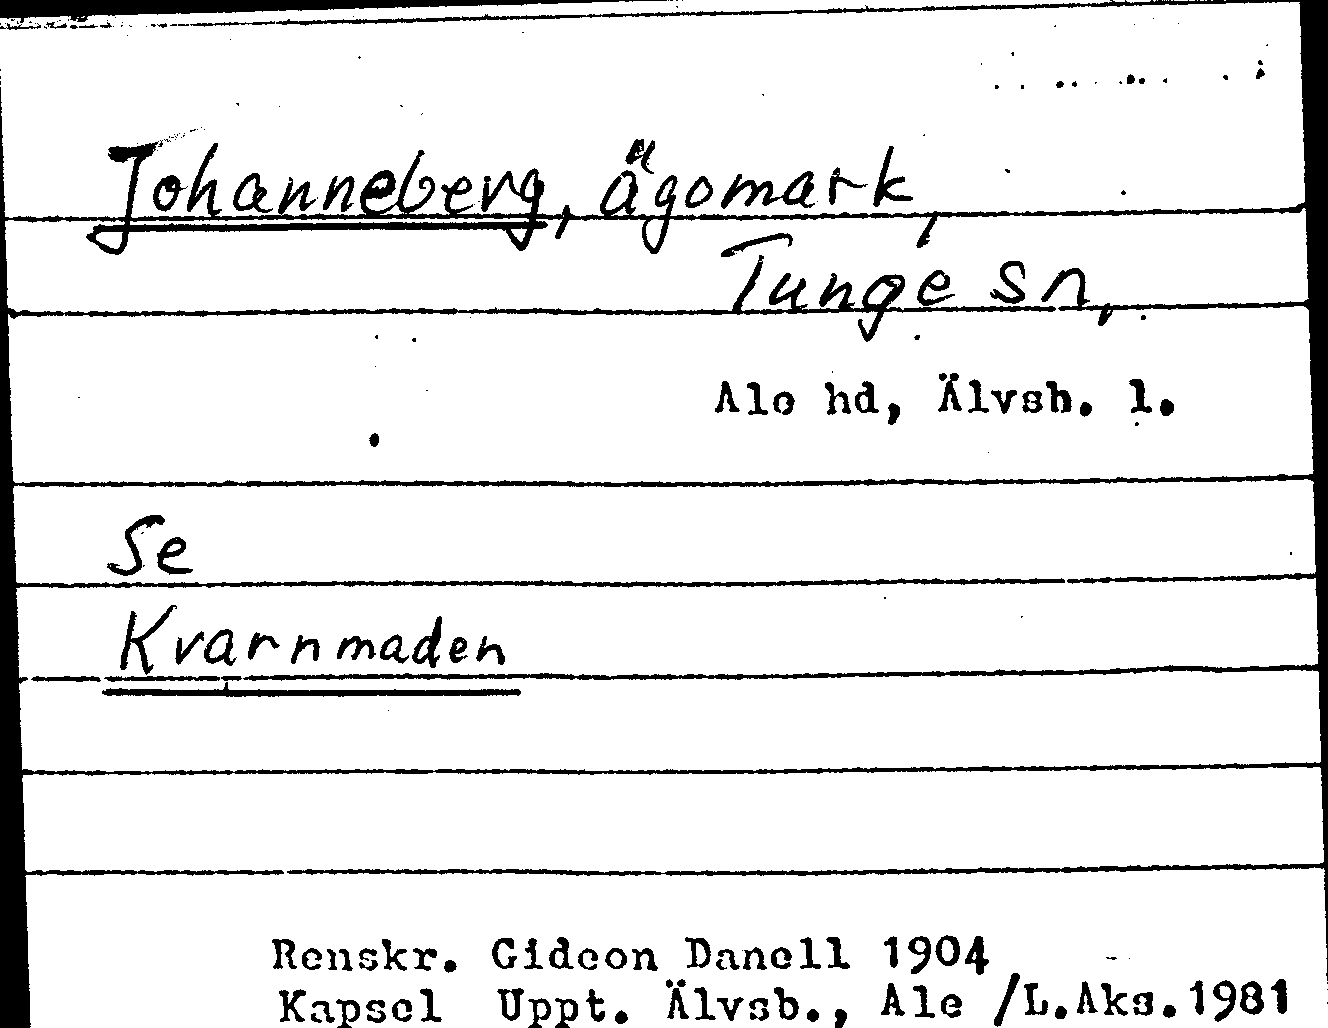 Johanneberg, ägomark,
Tunge sn,
Ale hd, Älvsb. l.
Se
Kvarnmaden
Renskr. Gideon Danell 1904
Kapsel Uppt. Älvsb., Ale /L.Aks.1981